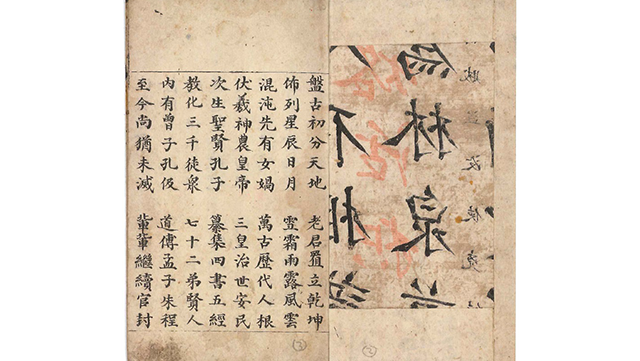 林泉
盤古初分天地 老君置立乾坤
佈列星辰日月 霜雨露風雲
混沌先有女媧 萬古歷代人根
伏羲神農皇帝 三皇治世安民
次生聖賢孔子 纂集四書五經
教化三千徒衆 七十二弟賢人
內有曾子孔伋 道傳孟子朱程
至今尚猶未滅 輩輩繼續官封